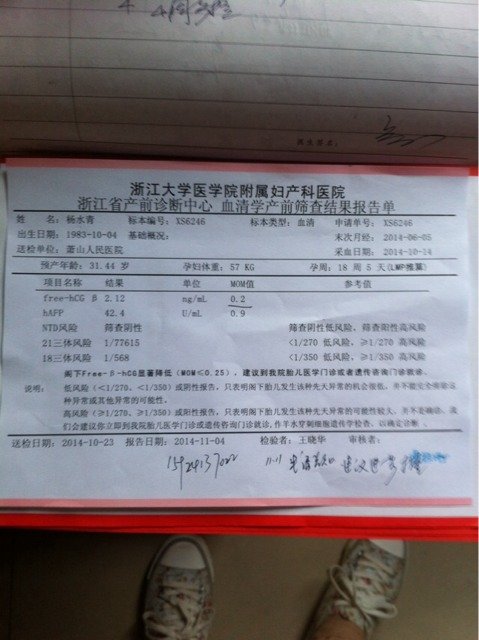 浙江大学医学院附属妇产科医院
浙江省产前诊断中心 血清学产前筛查结果报告单
姓 名: 杨水青 标本编号: XS6246 标本类型: 血清 申请单号: XS6246
出生日期: 1983-10-04 基础概况: 末次月经: 2014-06-05
送检单位: 萧山人民医院 采血日期: 2014-10-14
预产年龄: 31.44 岁 孕妇体重: 57 KG 孕周: 18 周 5 天(LMP推算)
项目名称 结果 单位 MOM值 参考值
free-hCG β 2.12 ng/mL 0.2
hAFP 42.4 U/mL 0.9
NTD风险 筛查阴性 筛查阴性低风险, 筛查阳性高风险
21三体风险 1/77615 <1/270 低风险, ≥1/270 高风险
18三体风险 1/568 <1/350 低风险, ≥1/350 高风险
阁下Free-β-hCG显著降低(MOM≤0.25), 建议到我院胎儿医学门诊或者遗传咨询门诊就诊.
说明: 低风险(<1/270、<1/350)或阴性报告, 只表明阁下胎儿发生该种先天异常的机会很低, 并不能完全排除这
种异常或其他异常的可能性.
高风险(≥1/270、≥1/350)或阳性报告, 只表明阁下胎儿发生该种先天异常的可能性较大, 并不是确诊. 我
们会建议你立即到我院胎儿医学门诊或遗传咨询门诊就诊, 作羊水穿刺细胞遗传学检查, 以确定诊断.
送检日期: 2014-10-23 报告日期: 2014-11-04 检验者: 王晓华 审核者:
11.11